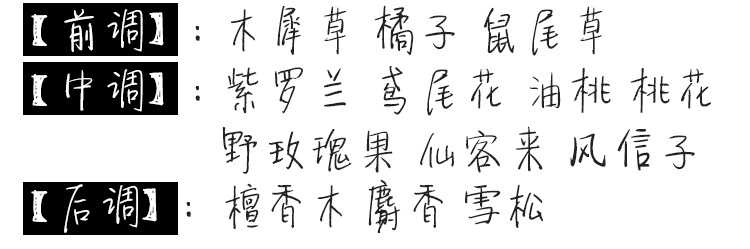 【前调】：木犀草 橘子 鼠尾草
【中调】：紫罗兰 鸢尾花 油桃 桃花
野玫瑰果 仙客来 风信子
【后调】：檀香木 麝香 雪松